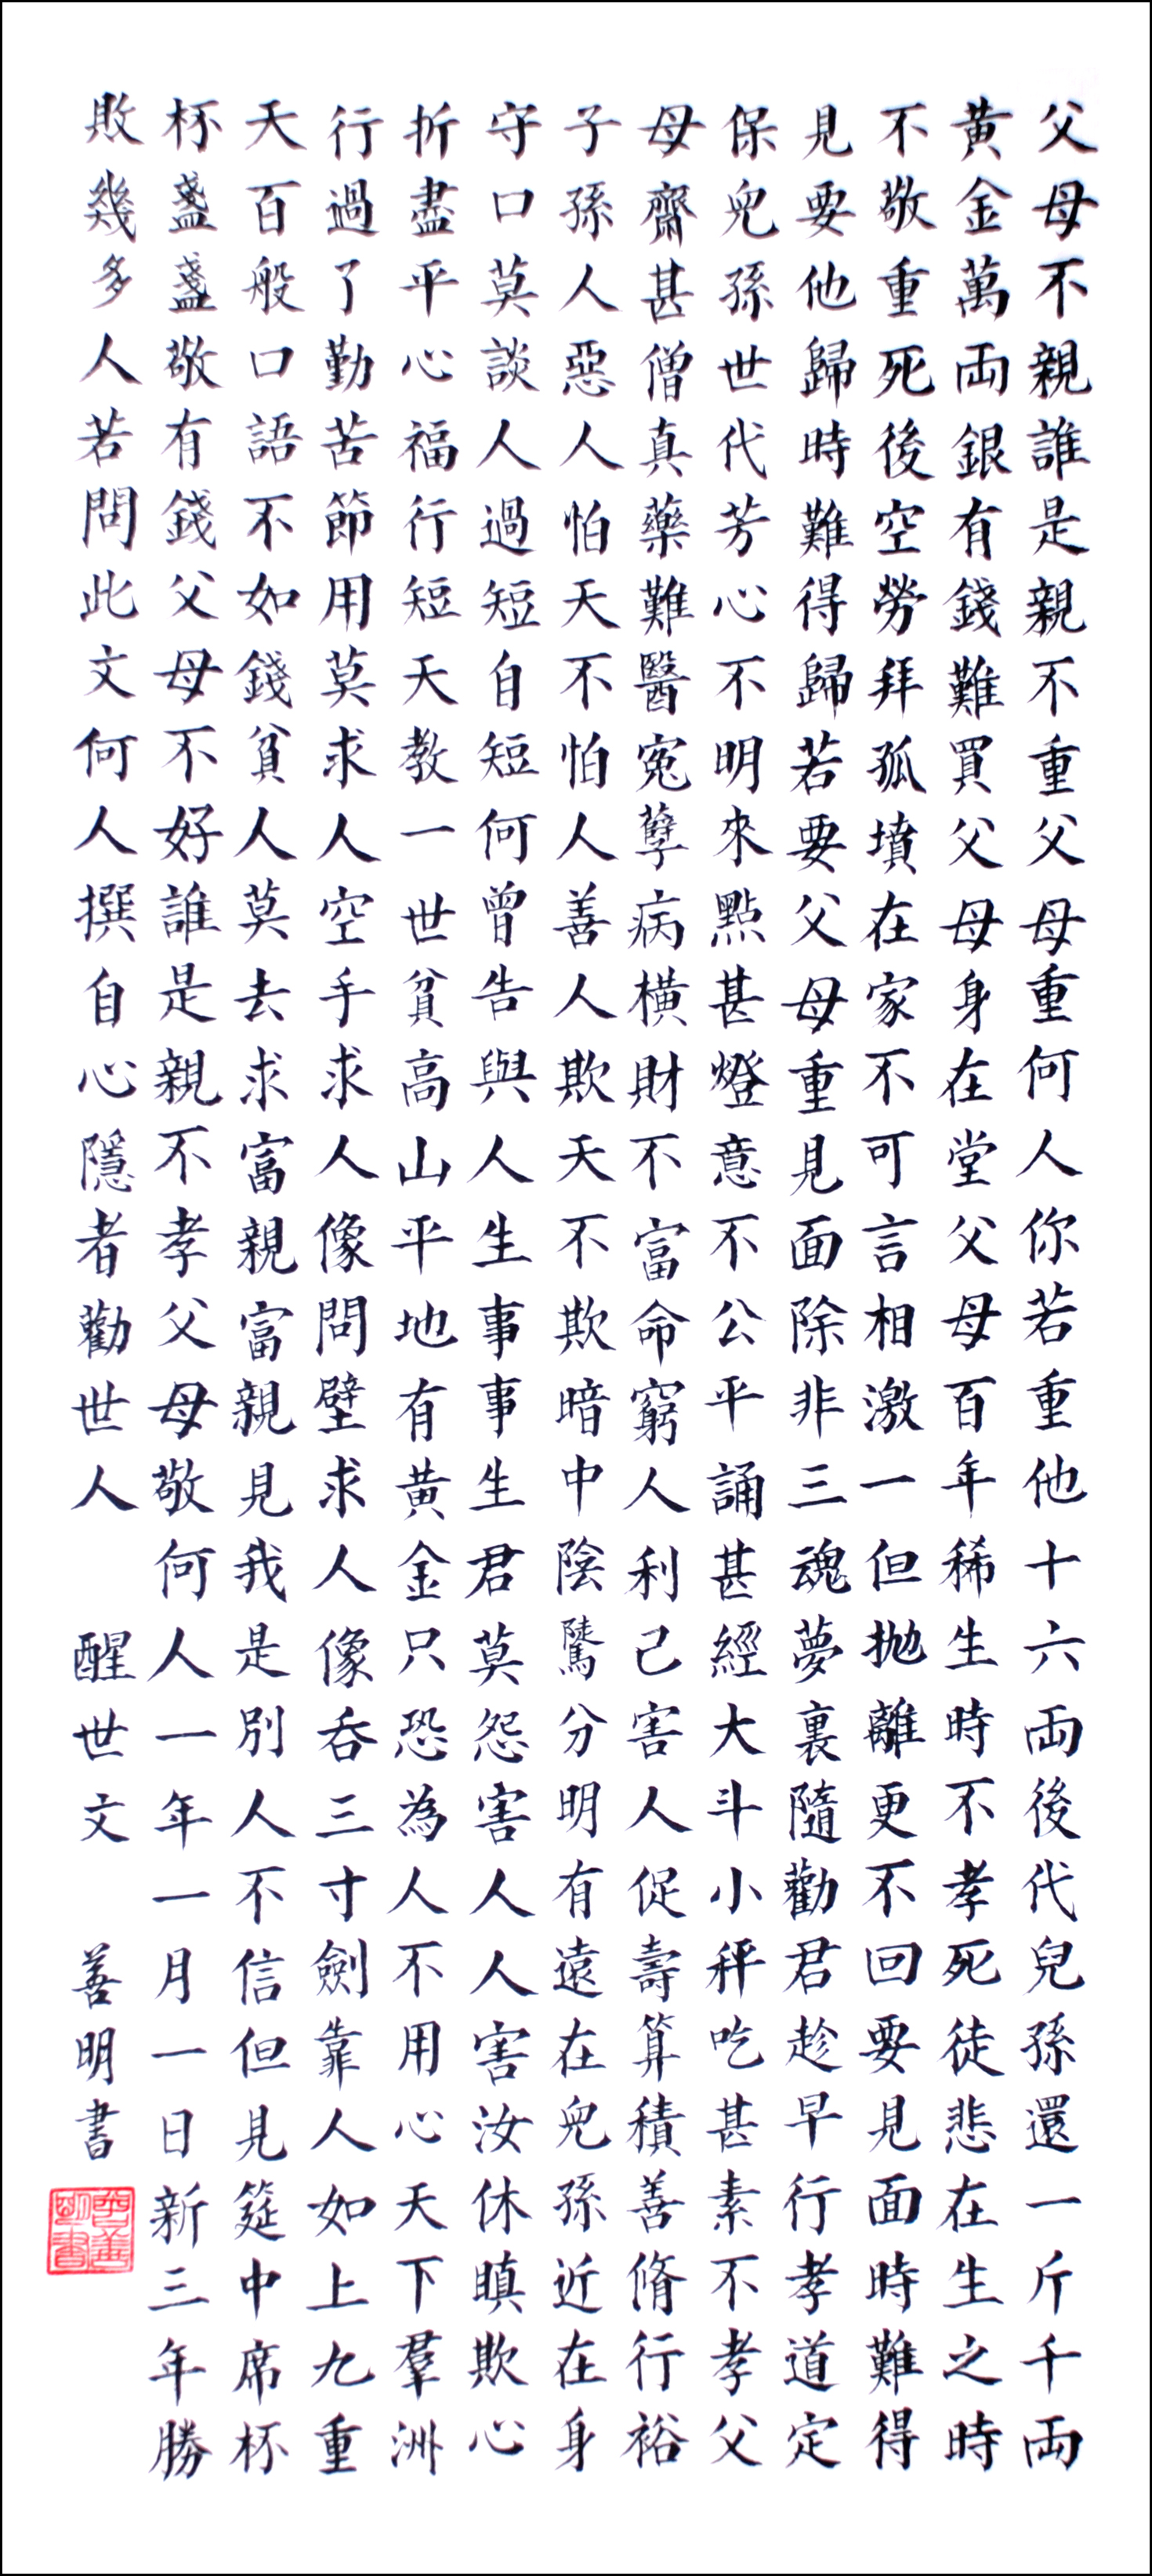 父母不親誰是親不重父母重何人你若重他十六両後代兒孫還一斤千両
黄金萬両銀有錢難買父母身在堂父母百年稀生時不孝死徒悲在生之時
不敬重死後空勞拜孤墳在家不可言相激一但拋離更不回要見面時難得
見要他歸時難得歸若要父母重見面除非三魂夢裏隨勸君趁早行孝道定
保兒孫世代芳心不明來點甚燈意不公平誦甚經大斗小秤吃甚素不孝父
母齋甚僧真藥難醫寃孽病橫財不富命窮人利己害人促壽算積善脩行裕
子孫人惡人怕天不怕人善人欺天不欺暗中陰騭分明有遠在兒孫近在身
守口莫談人過短自短何曾告與人生事事生君莫怨害人人害汝休瞋欺心
折盡平心福行短天教一世貧高山平地有黄金只恐為人不用心天下羣洲
行過了勤苦節用莫求人空手求人像問壁求人像吞三寸劍靠人如上九重
天百般口語不如錢貧人莫去求富親富親見我是別人不信但見筵中席杯
杯盞盞敬有錢父母不好誰是親不孝父母敬何人一年一月一日新三年勝
敗幾多人若問此文何人撰自心隱者勸世人 醒世文 善明書